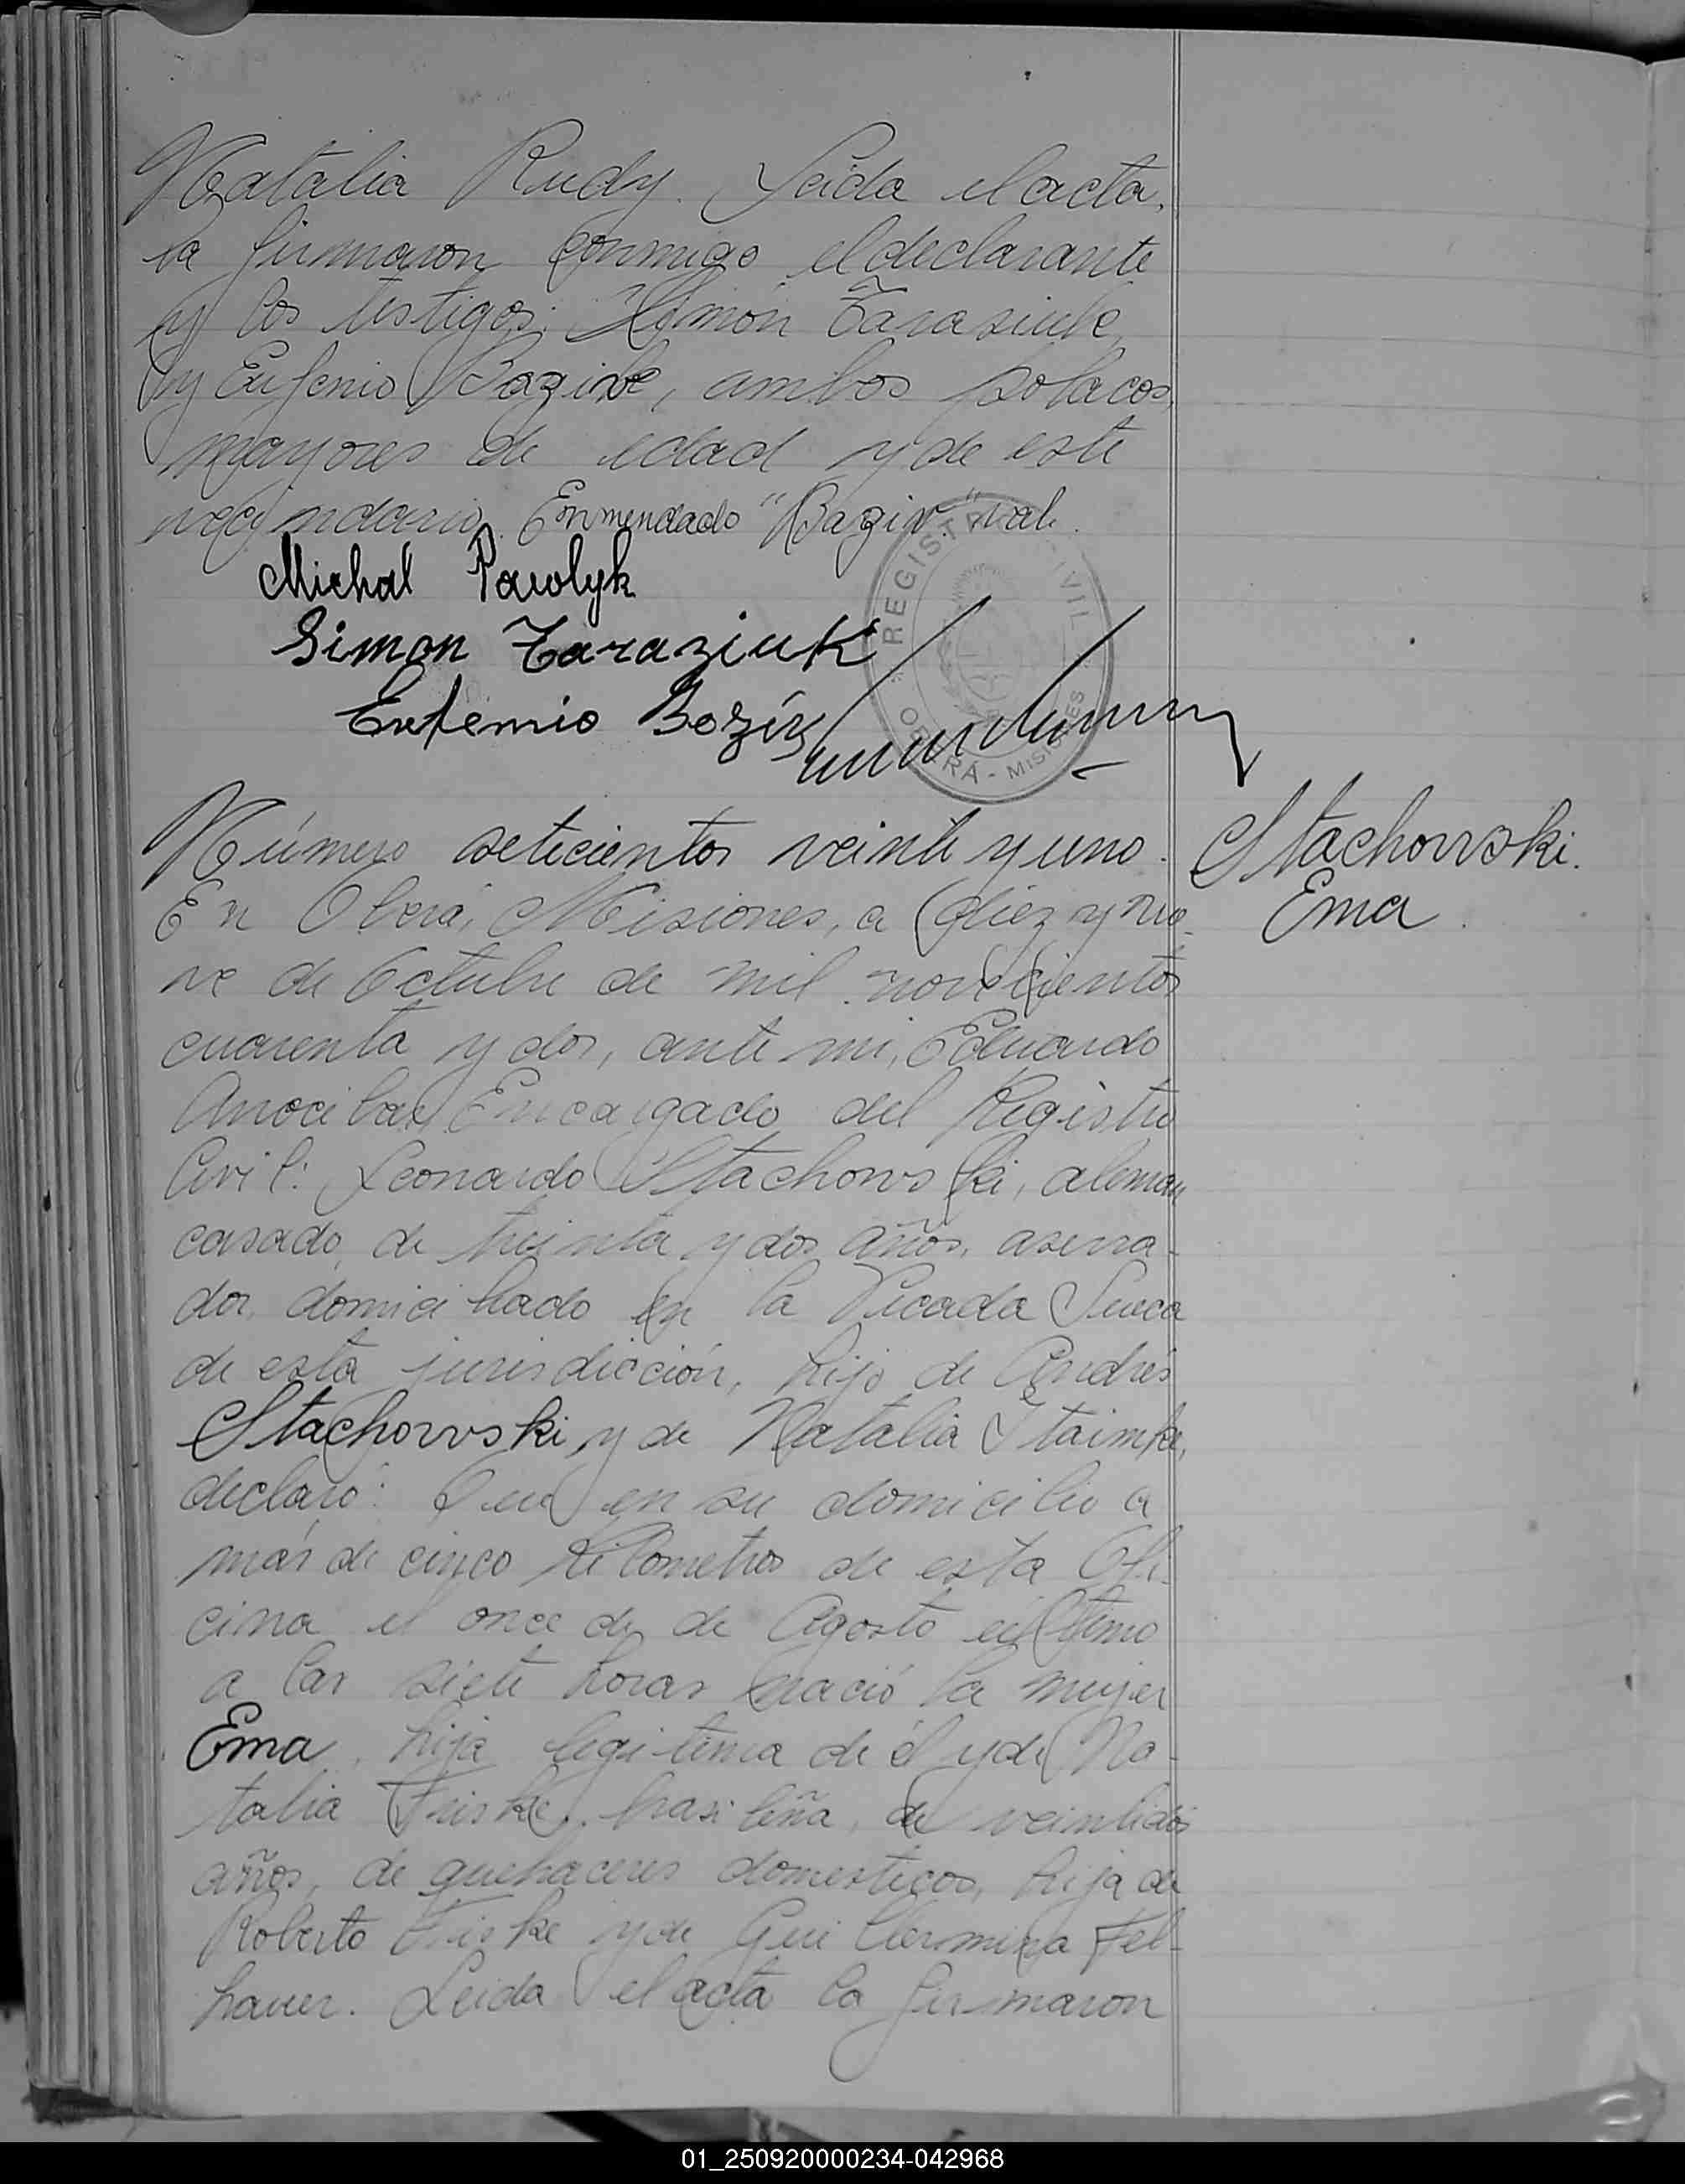 Natalia Rudy. Leida el acta,
la firmaron conmigo el declarante
y los testigos: Simón Tarasiuk
y Eufemio Bazik, ambos polacos,
mayores de edad y de este
vecindario. Enmendado "Bazik" vale.
Michal Pawlyk
Simon Taraziuk
Eufemio Bozik
REGISTRO CIVIL
OBERÁ - MISIONES
Número setecientos veinte y uno.
Stachowski.
Ema.
En Oberá, Misiones, a diez y nue-
ve de Octubre de mil novecientos
cuarenta y dos, ante mi, Eduardo
Anocibar Encargado del Registro
Civil: Leonardo Stachowski, aleman
casado, de treinta y dos años, aserra-
dor, domiciliado en la Picada Sueca
de esta jurisdicción, hijo de Andrés
Stachowski y de Natalia Staimke,
declaró: Que en su domicilio a
más de cinco kilometros de esta Ofi-
cina el once de de Agosto último
a las siete horas nació la mujer
Ema, hija legitima de él y de Na-
talia Friske, brasileña, de veintidos
años, de quehaceres domesticos, hija de
Roberto Friske y de Guillermina Fel-
hauer. Leida el acta la firmaron
01_250920000234-042968